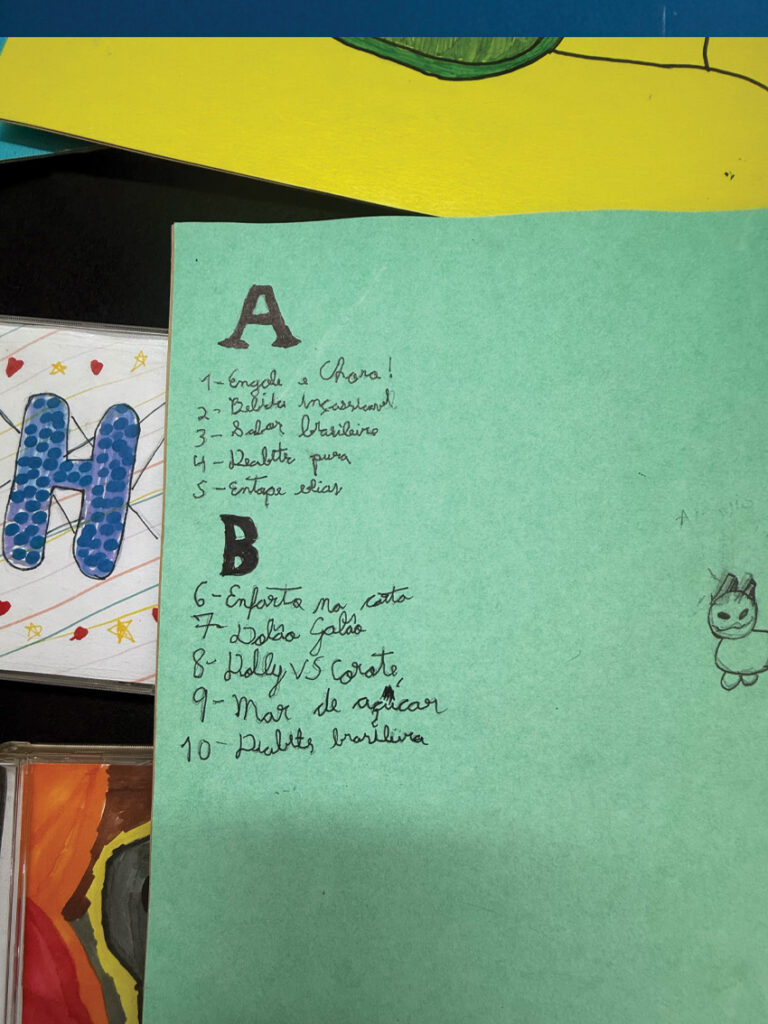 H
A
1-Engole e Chora!
2-Bebida
3-Sabor brasileiro
4-Diabtts pura
5-Entope
B
6-Enfarto na certa
7-Dolão Galão
8-Dolly VS Corote
9-Mar de açúcar
10-Diabtts brasileira